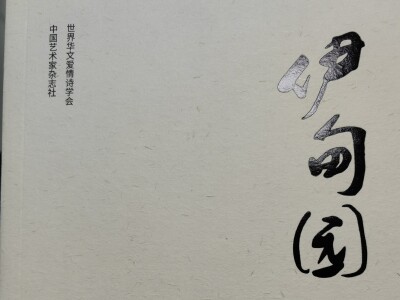 伊甸园
世界华文爱情诗学会
中国艺术家杂志社